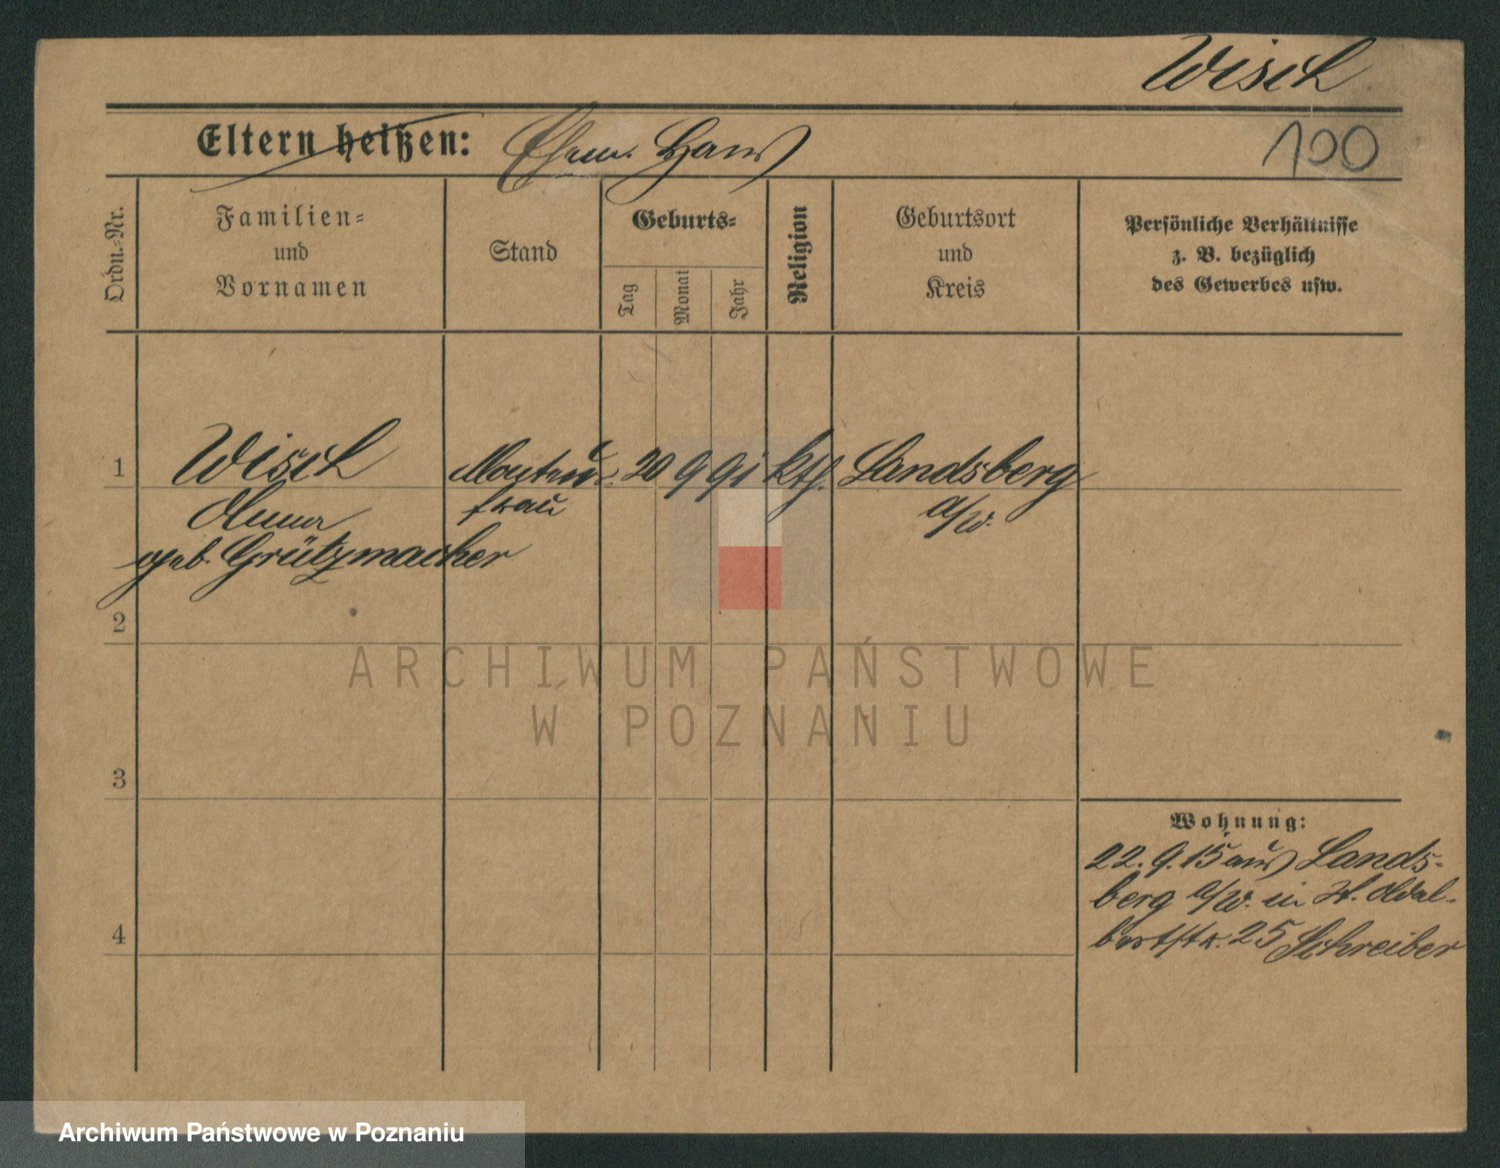 Wisch
Eltern heißen: Ehem. Hans
100
Ordn.-Nr.
Familien-
und
Vornamen
Stand
Geburts-
Tag
Monat
Jahr
Religion
Geburtsort
und
Kreis
Persönliche Verhältnisse
z. B. bezüglich
des Gewerbes usw.
1 Wisch 20 9 91 kth. Landsberg
frau a/W.
Anna
geb. Grützmacher
2
ARCHIWUM PAŃSTWOWE
W POZNANIU
3
Wohnung:
22. 9. 15 aus Lands-
berg a/W. in St. Adal-
bertstr. 25 Schreiber
4
Archiwum Państwowe w Poznaniu